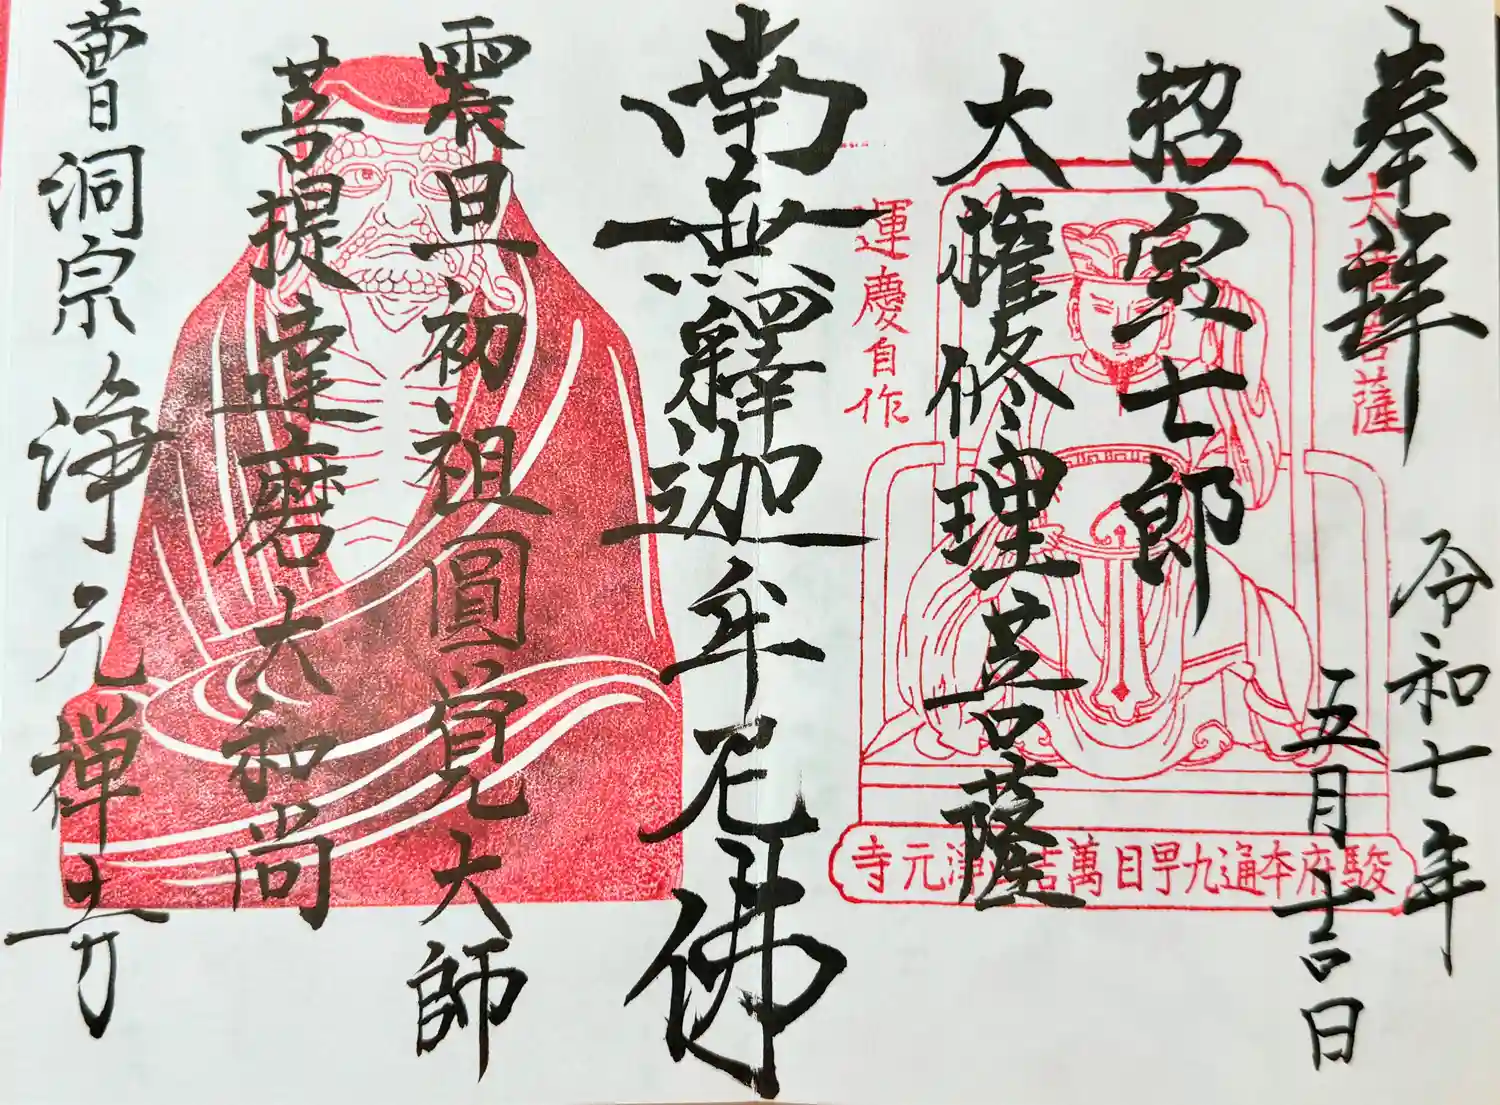 奉拝
令和七年
五月吉日
招宝七郎
大権修理菩薩
運慶自作
南無釋迦牟尼佛
震旦初祖圓覚大師
菩提達磨大和尚
曹洞宗 浄元禅寺
駿府本通九早目萬吉山浄元寺